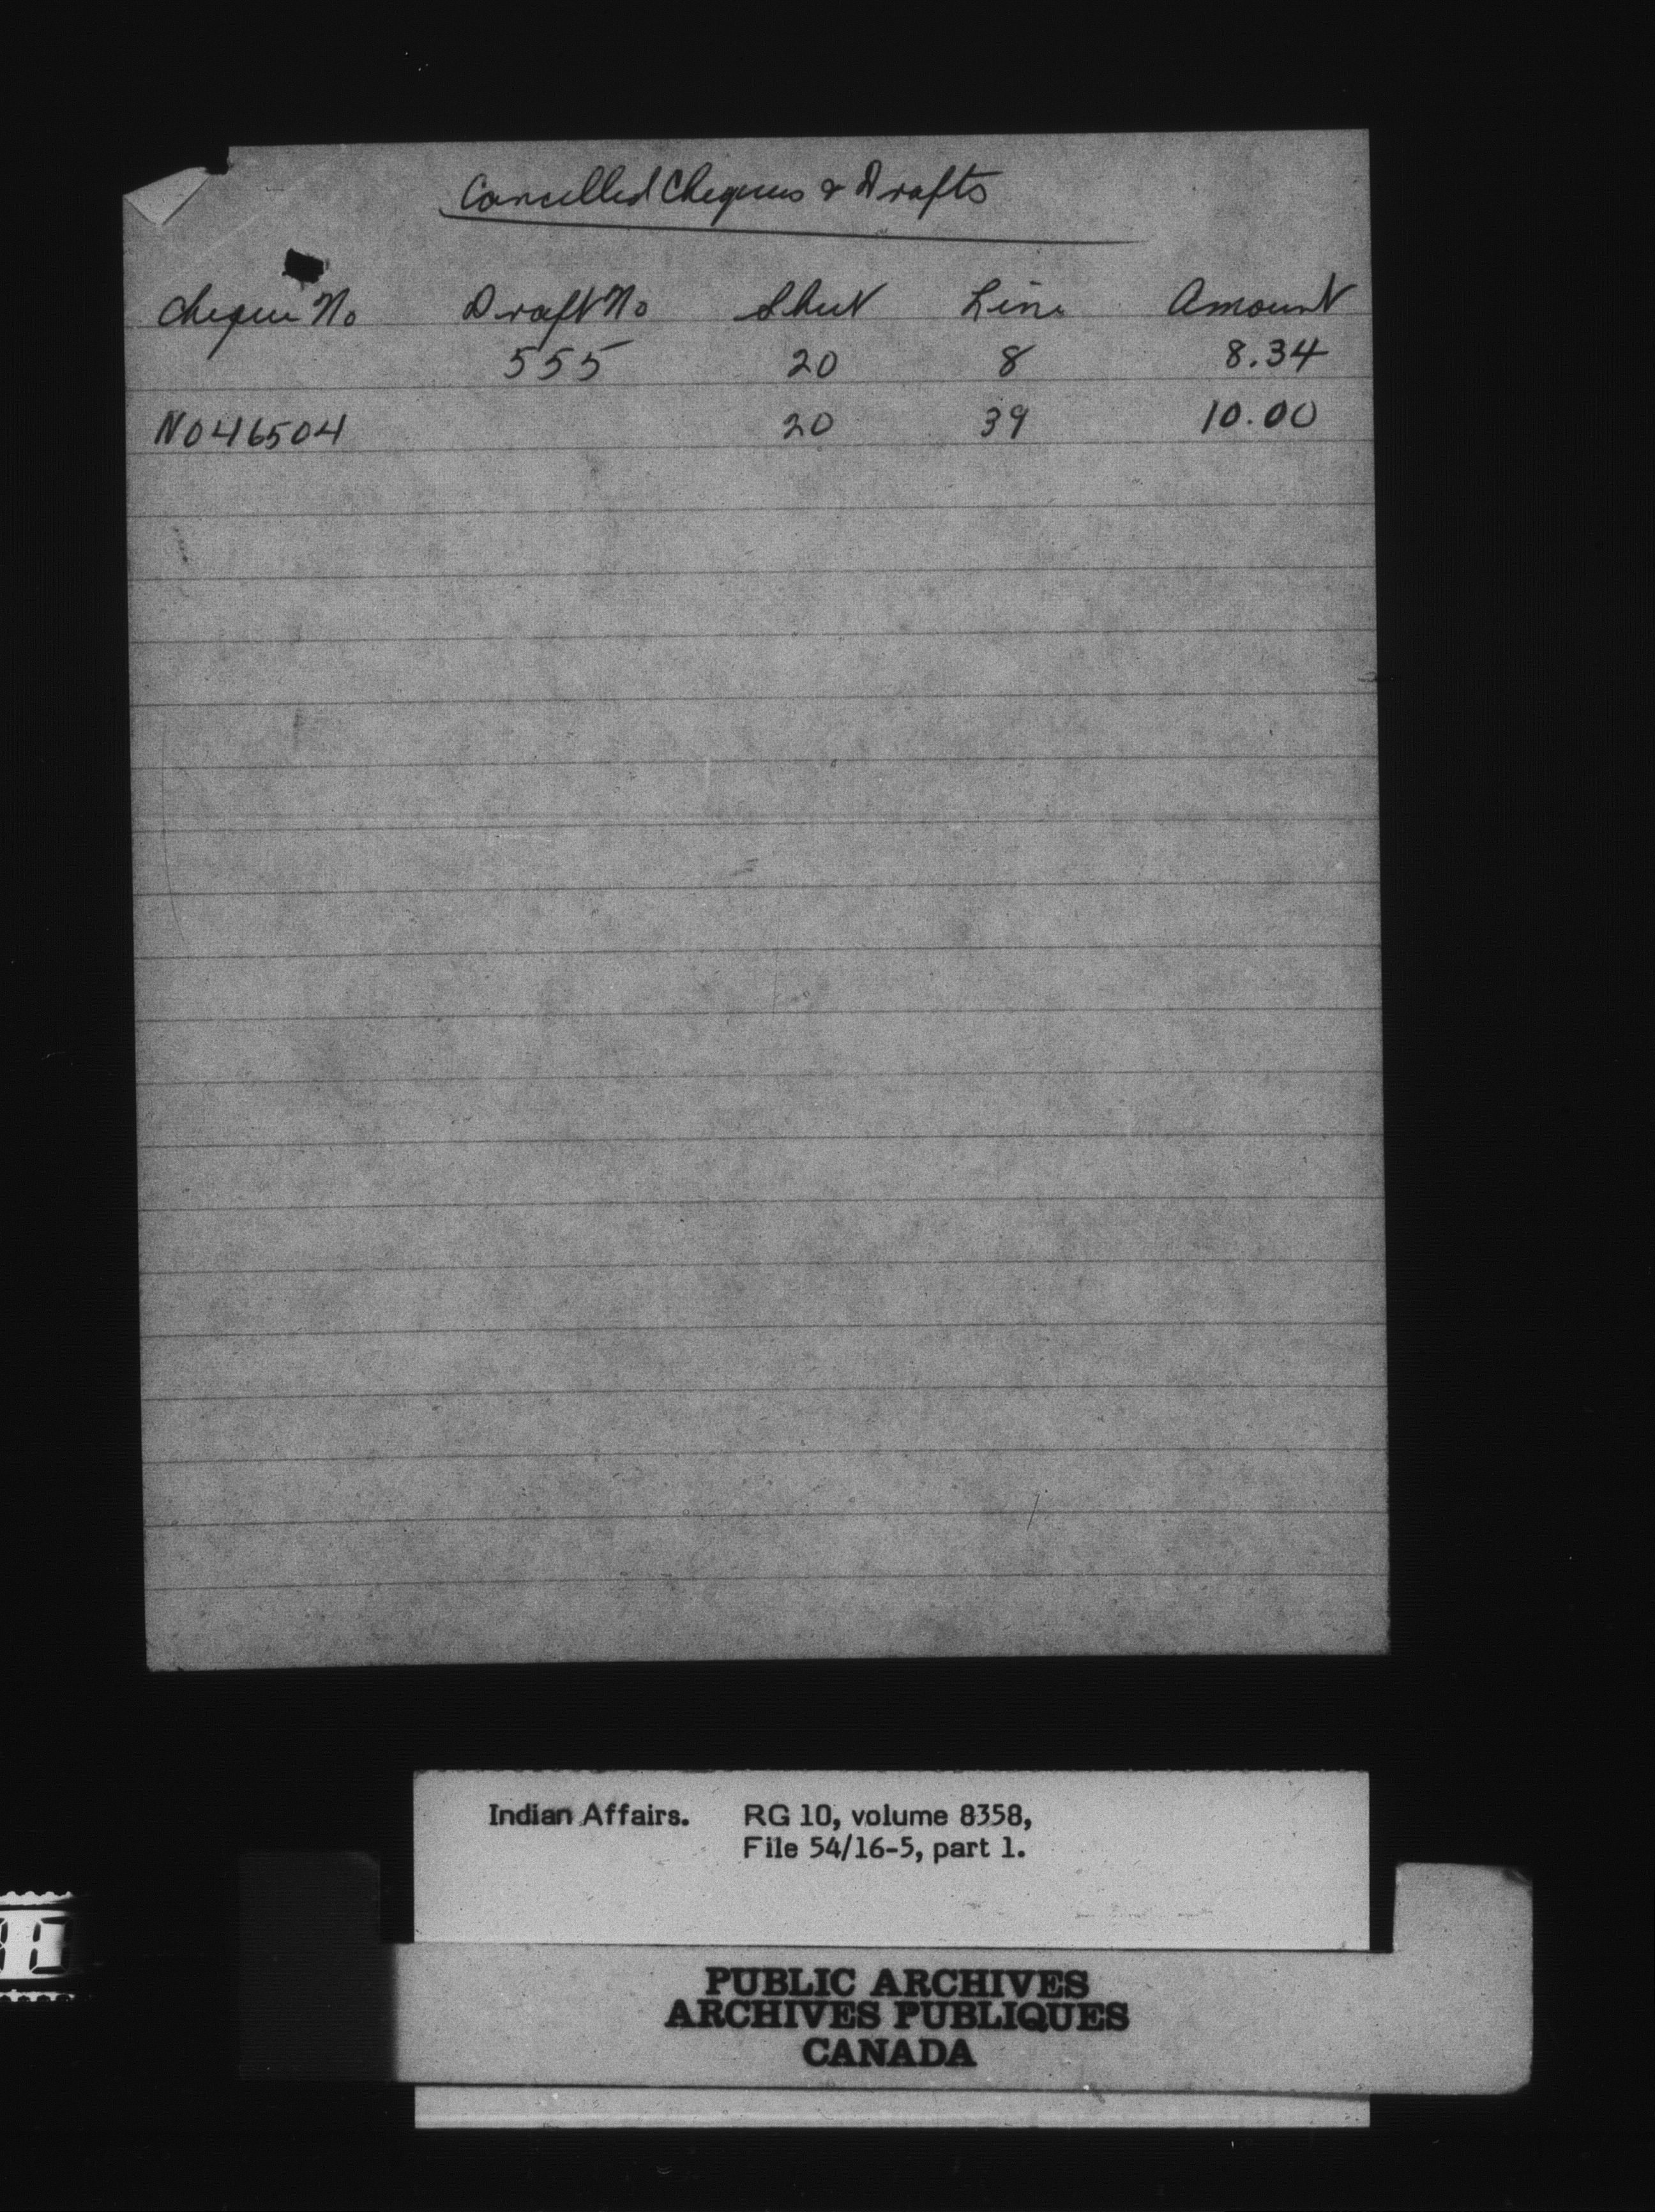 Cancelled Cheques & Drafts
Cheque No Draft No Sheet Line Amount
555 20 8 8.34
N046504 20 39 10.00
Indian Affairs. RG 10, volume 8358,
File 54/16-5, part 1.
PUBLIC ARCHIVES
ARCHIVES PUBLIQUES
CANADA